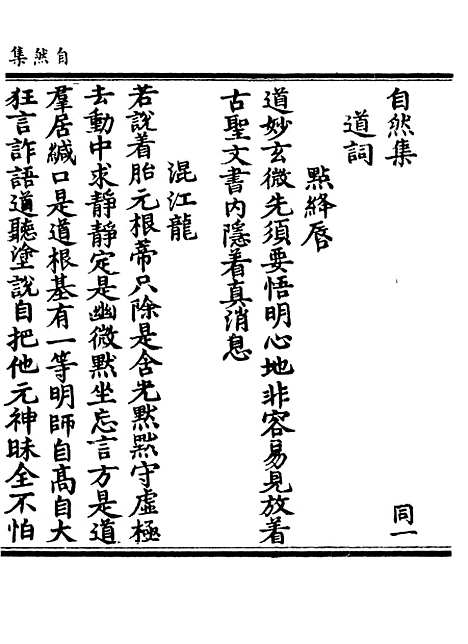 自然集
自然集 同一
道詞
點絳唇
道妙玄微先須要悟明心地非容易見放着
古聖文書內隱着真消息
混江龍
若說着胎元根蒂只除是含光默默守虛極
去動中求靜靜定是幽微默坐忘言方是道
羣居緘口是道根基有一等明師自高自大
狂言詐語道聽塗說自把他元神昧全不怕